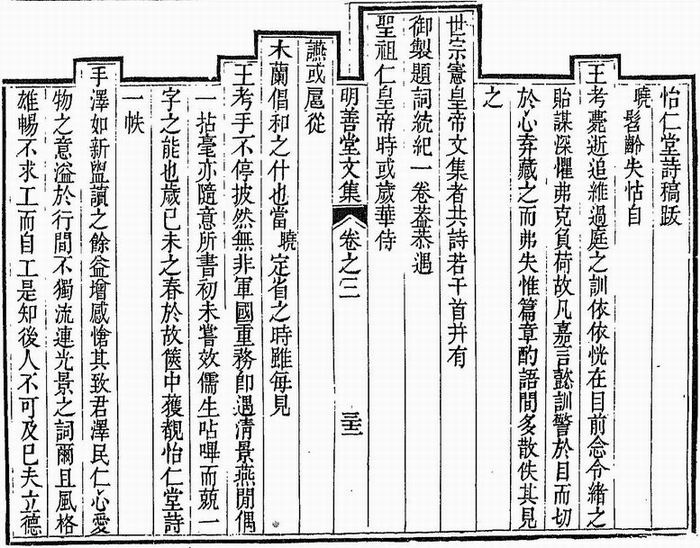 怡仁堂詩稿跋
曉髫齡失怙自
王考薨逝追維過庭之訓依依恍在目前念令緒之
貽謀深懼弗克負荷故凡嘉言懿訓警於目而切
於心弆藏之而弗失惟篇章酌語間多散佚其見
之
世宗憲皇帝文集者共詩若干首幷有
御製題詞統紀一卷葢恭遇
聖祖仁皇帝時或歲華侍
明善堂文集 卷之三 三十二
讌或扈從
木蘭倡和之什也當曉定省之時雖每見
王考手不停披然無非軍國重務卽遇淸景燕閒偶
一拈毫亦隨意所書初未嘗效儒生呫嗶而兢一
字之能也歲己未之春於故篋中獲觀怡仁堂詩
一帙
手澤如新盥讀之餘益增感愴其致君澤民仁心愛
物之意溢於行間不獨流連光景之詞爾且風格
雄暢不求工而自工是知後人不可及已夫立德